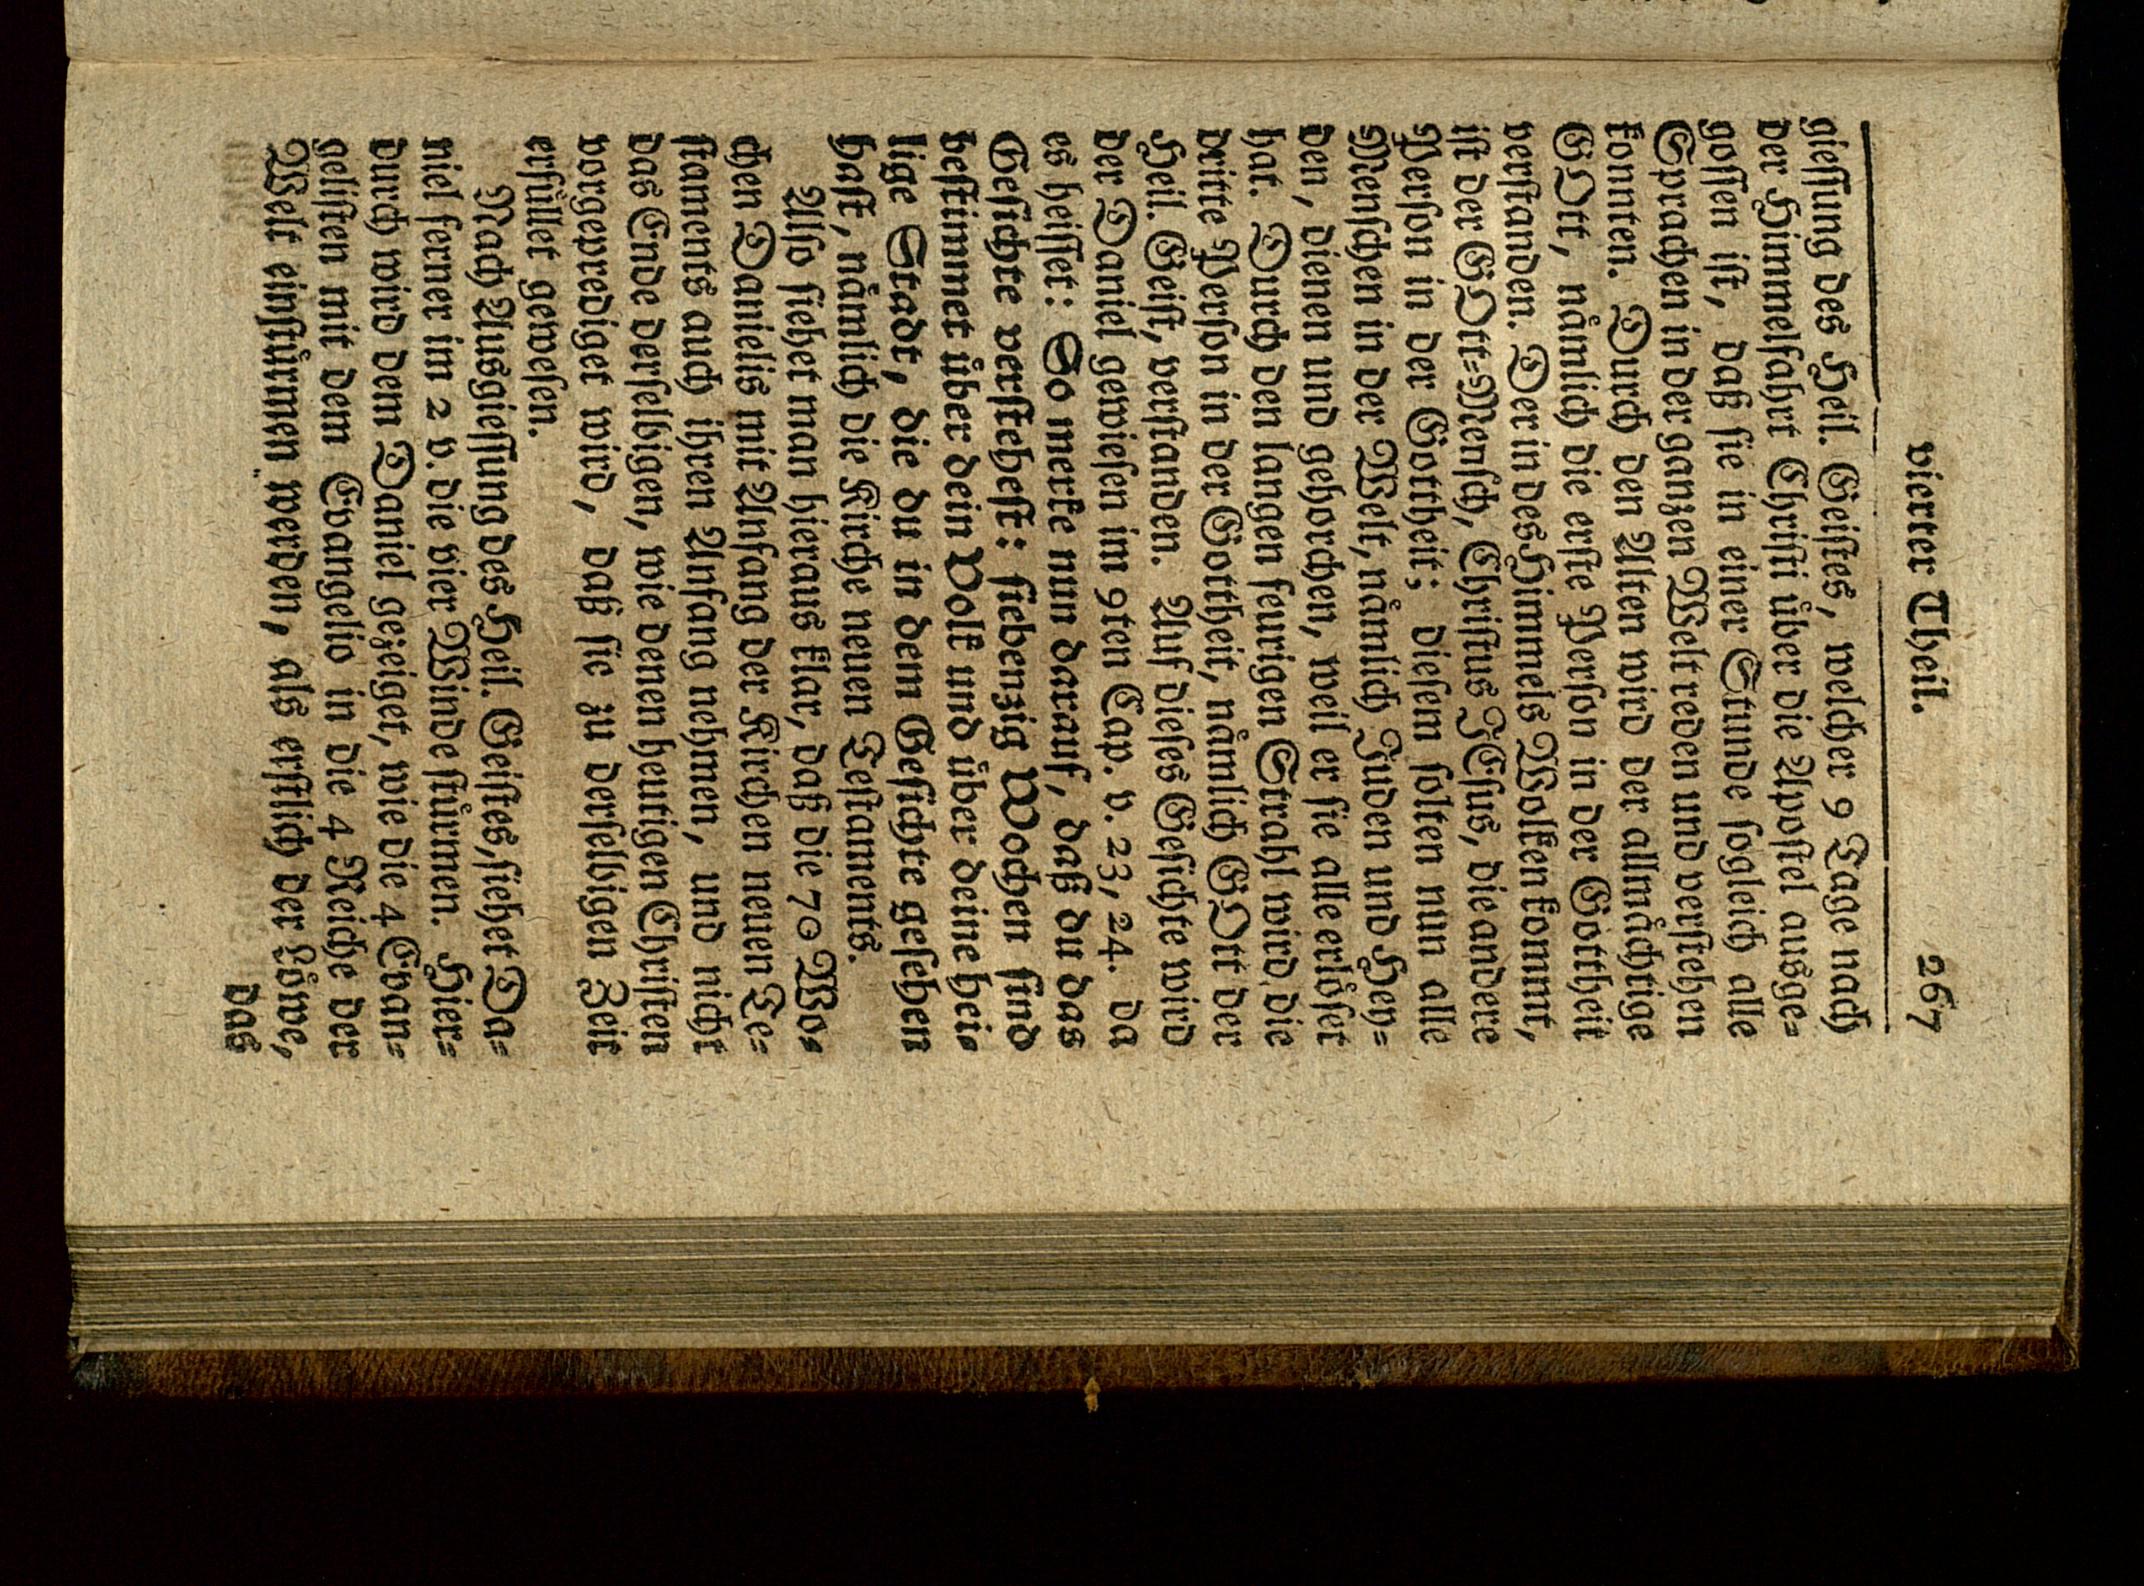 vierter Theil. 267
gieſſung des Heil. Geiſtes, welcher 9 Tage nach
der Himmelfahrt Chriſti uͤber die Apoſtel ausge⸗
goſſen iſt, daß ſie in einer Stunde ſogleich alle
Sprachen in der ganzen Welt reden und verſtehen
konnten. Durch den Alten wird der allmaͤchtige
GOtt, naͤmlich die erſte Perſon in der Gottheit
verſtanden. Der in des Himmels Wolken kommt,
iſt der GOtt⸗Menſch, Chriſtus JEſus, die andere
Perſon in der Gottheit; dieſem ſolten nun alle
Menſchen in der Welt, naͤmlich Juden und Hey⸗
den, dienen und gehorchen, weil er ſie alle erloͤſet
hat. Durch den langen feurigen Strahl wird die
dritte Perſon in der Gottheit, naͤmlich GOtt der
Heil. Geiſt, verſtanden. Auf dieſes Geſichte wird
der Daniel gewieſen im 9ten Cap. v. 23, 24. da
es heiſſet: So merke nun darauf, daß du das
Geſichte verſteheſt: ſiebenzig Wochen ſind
beſtimmet uͤber dein Volk und uͤber deine hei⸗
lige Stadt, die du in dem Geſichte geſehen
haſt, naͤmlich die Kirche neuen Teſtaments.
Alſo ſiehet man hieraus klar, daß die 70 Wo⸗
chen Danielis mit Anfang der Kirchen neuen Te⸗
ſtaments auch ihren Anfang nehmen, und nicht
das Ende derſelbigen, wie denen heutigen Chriſten
vorgeprediget wird, daß ſie zu derſelbigen Zeit
erfuͤllet geweſen.
Nach Ausgieſſung des Heil. Geiſtes, ſiehet Da⸗
niel ferner im 2 v. die vier Winde ſtuͤrmen. Hier⸗
durch wird dem Daniel gezeiget, wie die 4 Evan⸗
geliſten mit dem Evangelio in die 4 Reiche der
Welt einſtuͤrmen werden, als erſtlich der Loͤwe,
das